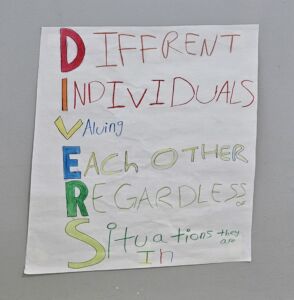 DIFFRENT
INDIVIDUALS
Valuing
EACH OTHER
REGARDLESS
of
Situations they
are
In